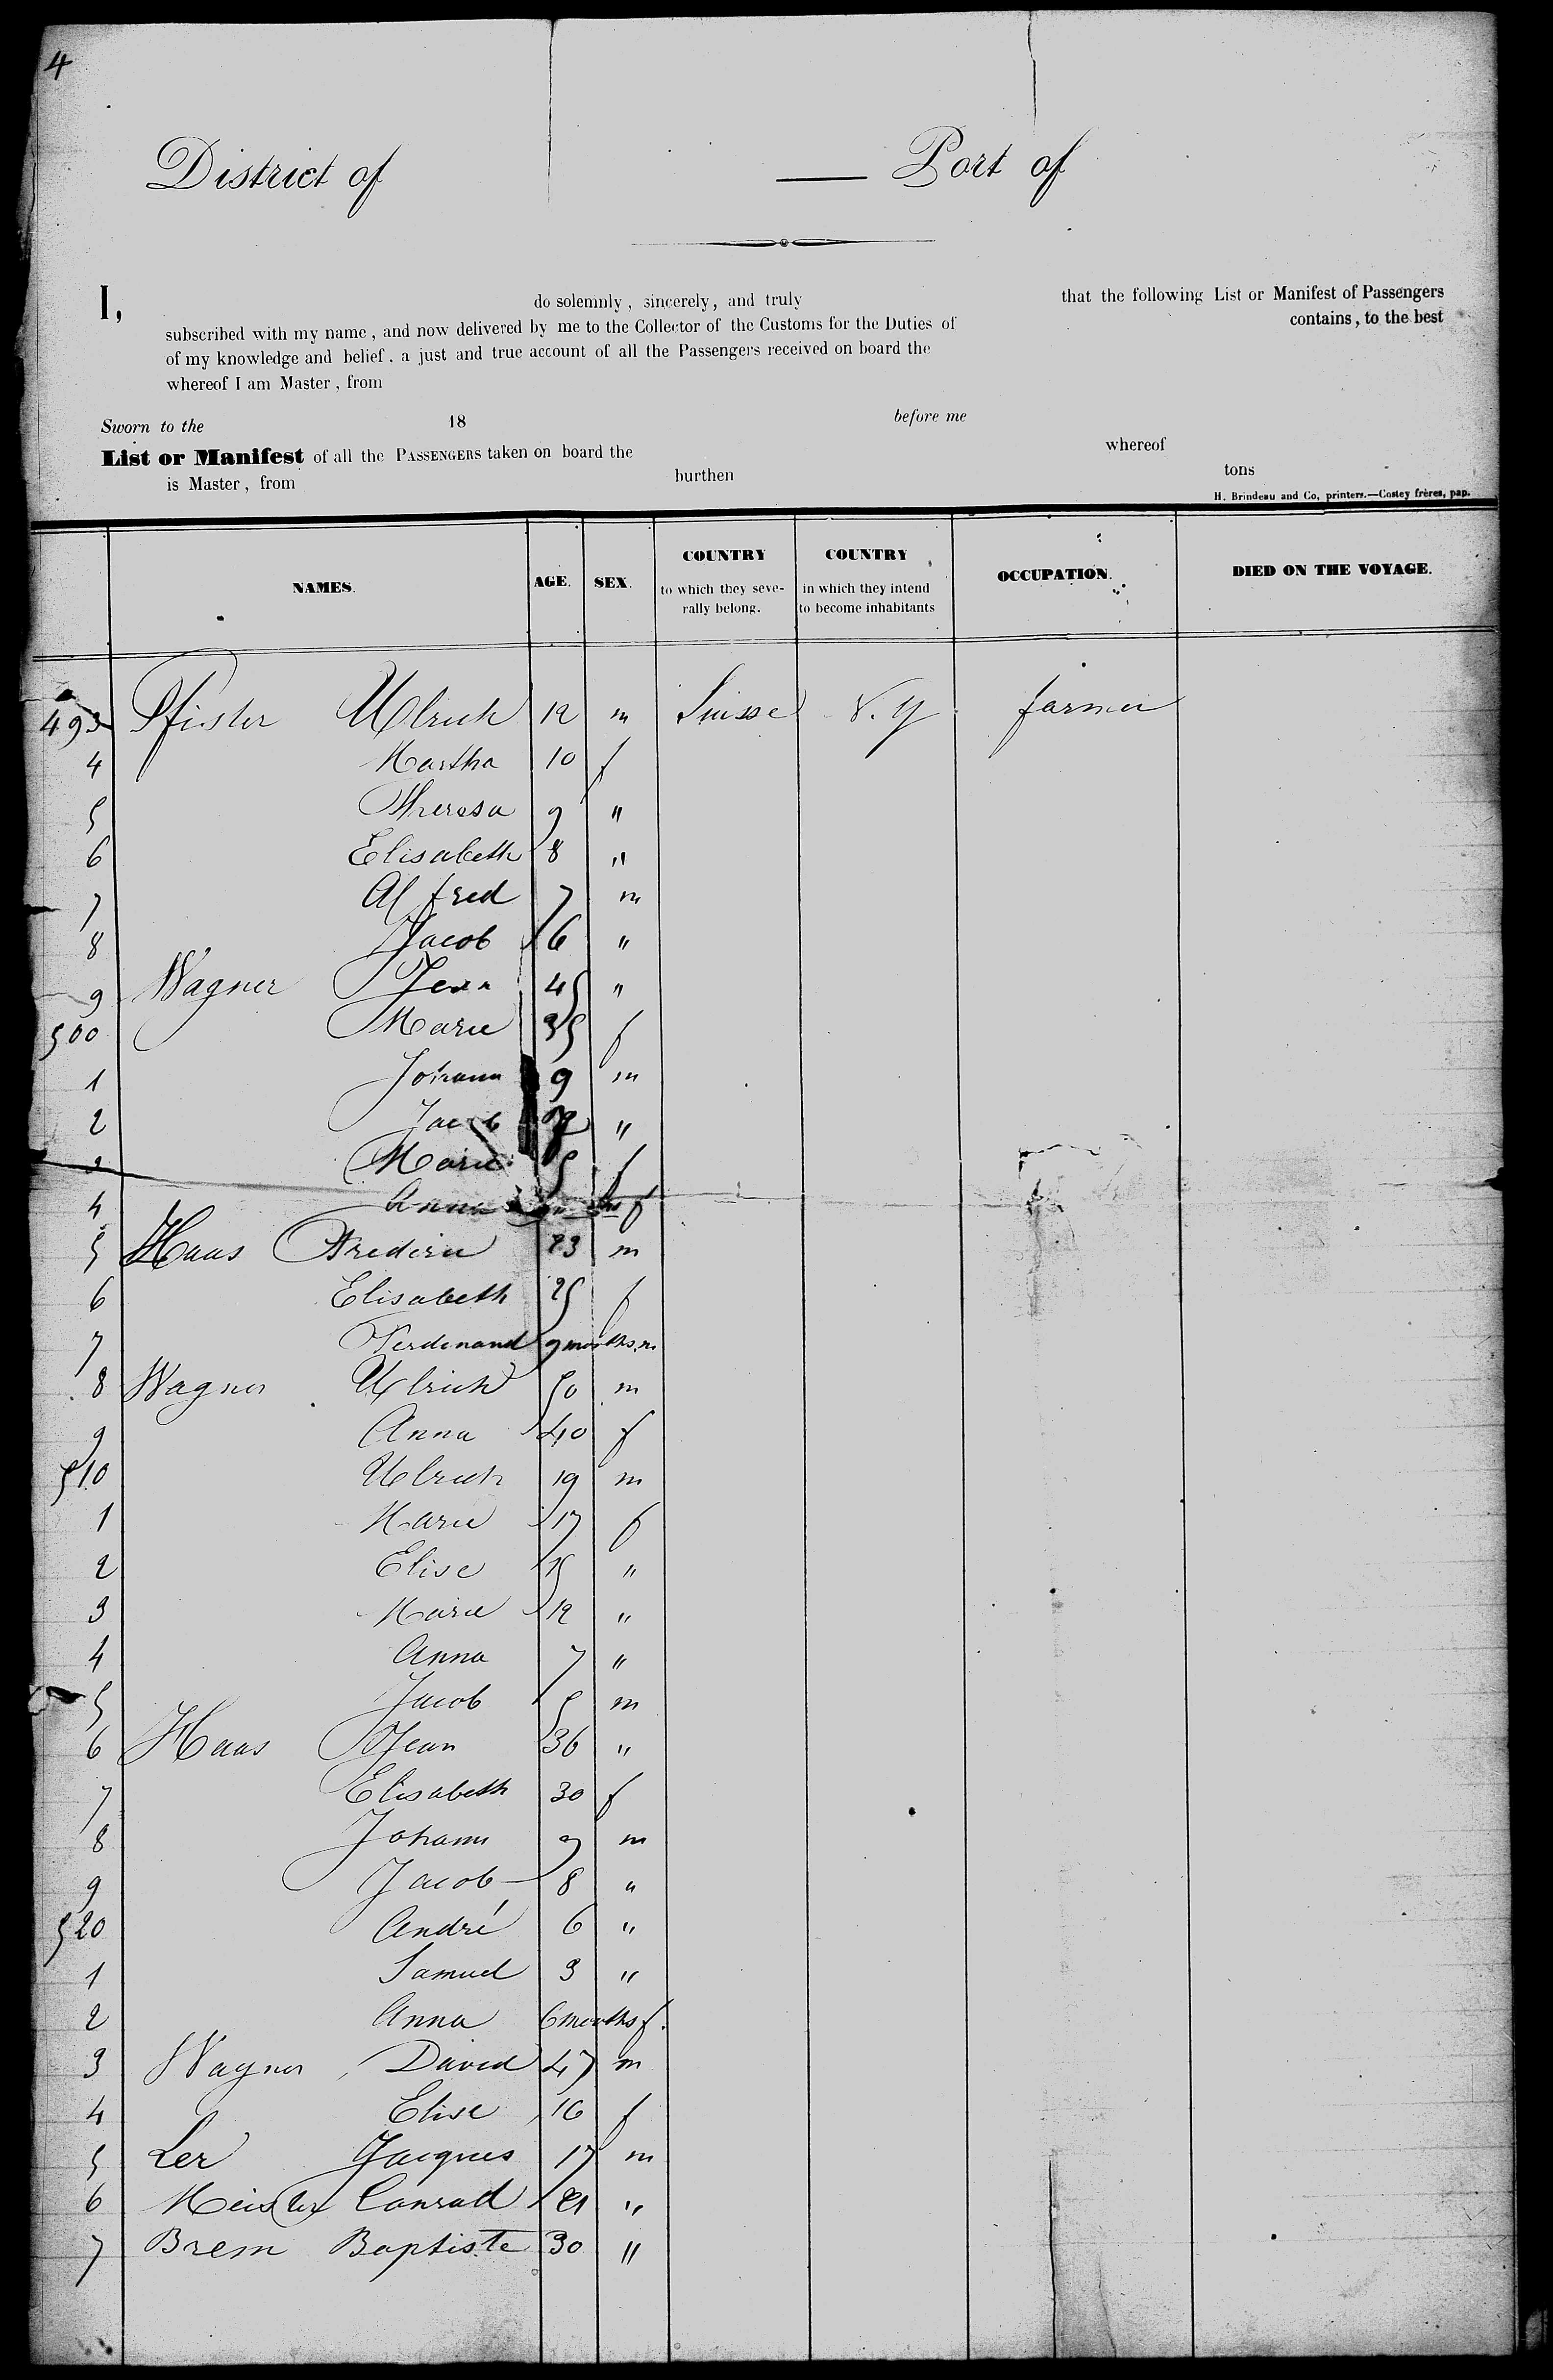 4
District of — Port of
I, do solemnly, sincerely, and truly that the following List or Manifest of Passengers
subscribed with my name, and now delivered by me to the Collector of the Customs for the Duties of contains, to the best
of my knowledge and belief, a just and true account of all the Passengers received on board the
whereof I am Master, from
Sworn to the 18 before me
List or Manifest of all the PASSENGERS taken on board the whereof
is Master, from burthen tons
H. Brindeau and Co, printers.—Costey frères, pap.
NAMES. AGE. SEX. COUNTRY to which they severally belong. COUNTRY in which they intend to become inhabitants OCCUPATION. DIED ON THE VOYAGE.
493 Pfister Ulrich 12 m Suisse N.Y farmer
4 Martha 10 f
5 Theresa 9 "
6 Elisabeth 8 "
7 Alfred 7 m
8 Jacob 6 "
9 Wagner Jean 45 "
500 Marie 35 f
1 Johann 9 m
2 Jacob "
3 Marie 5 f
4 Anna f
5 Haas Frederic 23 m
6 Elisabeth 25 f
7 Ferdinand 9 months m
8 Wagner Ulrich 50 m
9 Anna 40 f
510 Ulrich 19 m
1 Marie 17 f
2 Elise 15 "
3 Marie 12 "
4 Anna 7 "
5 Jacob 5 m
6 Haas Jean 36 "
7 Elisabeth 30 f
8 Johann 9 m
9 Jacob 8 "
520 André 6 "
1 Samuel 3 "
2 Anna 6 months f.
3 Wagner David 47 m
4 Elise 16 f
5 Ler Jacques 17 m
6 Meister Conrad 21 "
7 Brem Baptiste 30 "